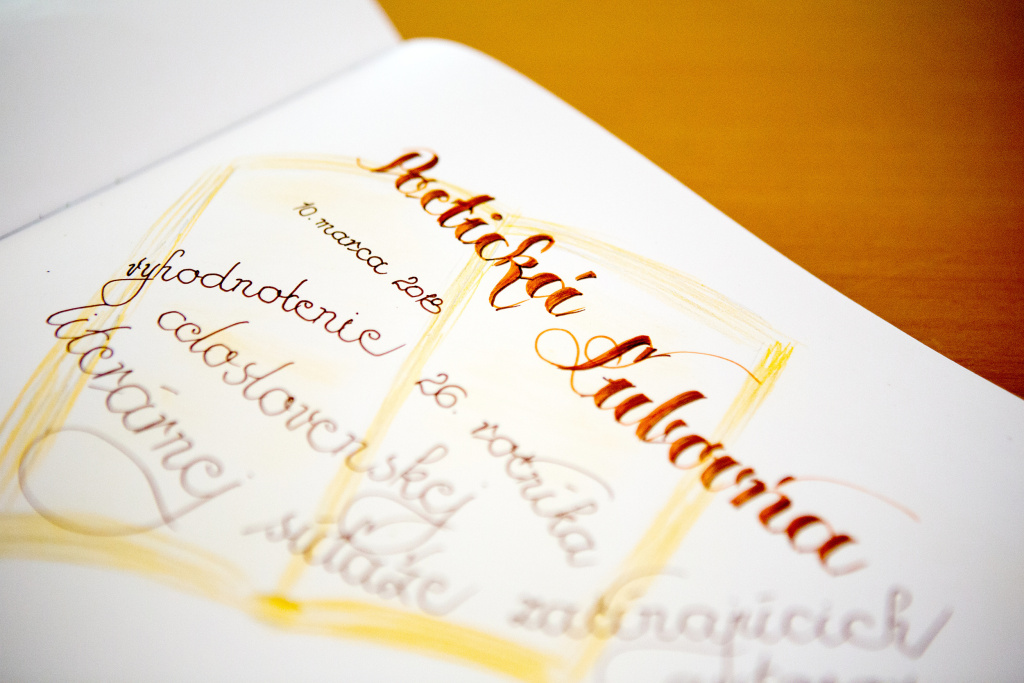 Poetická Ľubovňa
10. marca 2013
vyhodnotenie 26. ročníka
celoslovenskej
literárnej súťaže začínajúcich